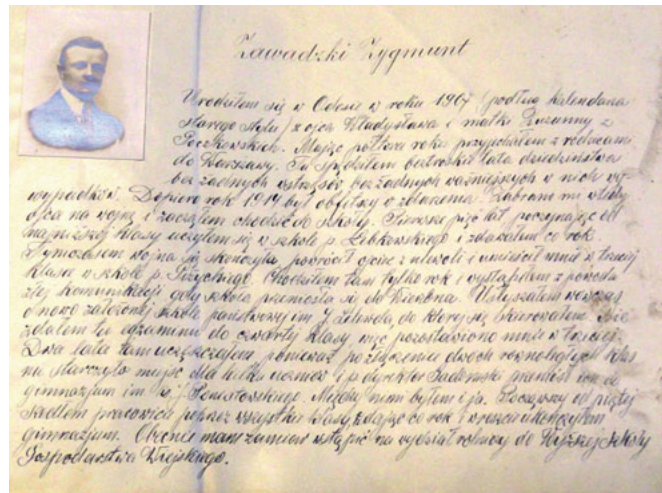 Zawadzki Zygmunt
Urodziłem się w Odesie w roku 1907 /podług kalendarza
starego stylu/ z ojca Władysława i matki Zuzanny z
Poczkowskich. Mając półtora roku przyjechałem z rodzicami
do Warszawy. Tu spędziłem beztroskie lata dzieciństwa
bez żadnych wstrząsów, bez żadnych ważniejszych w nich wy-
wypadków. Dopiero rok 1914 był obfitszy w zdarzenia. Zabrano mi wtedy
ojca na wojnę i zacząłem chodzić do szkoły. Pierwsze pięć lat, poczynając od
najniższej klasy uczyłem się w szkole p. Łebkowskiego i zdawałem co rok.
Tymczasem wojna się skończyła, powrócił ojciec z niewoli i umieścił mnie w trzeciej
klasie w szkole p. Giżyckiego. Chodziłem tam tylko rok i wystąpiłem z powodu
złej komunikacji gdy szkoła przeniosła się do Wierzbna. Usłyszałem wówczas
o nowo założonej szkole państwowej im. J. Lelewela, do której się skierowałem. Nie
zdałem tu egzaminu do czwartej klasy więc pozostawiono mnie w trzeciej.
Dwa lata tam uczęszczałem, ponieważ po złączeniu dwóch równoległych klas
nie starczyło miejsc dla kilku uczniów i p. dyrektor Sadowski przeniósł ich do
gimnazjum im. ks. J. Poniatowskiego. Między nimi byłem i ja. Począwszy od piątej
szedłem pracowicie poprzez wszystkie klasy zdając co rok i wreszcie ukończyłem
gimnazjum. Obecnie mam zamiar wstąpić na wydział rolniczy do Wyższej Szkoły
Gospodarstwa Wiejskiego.